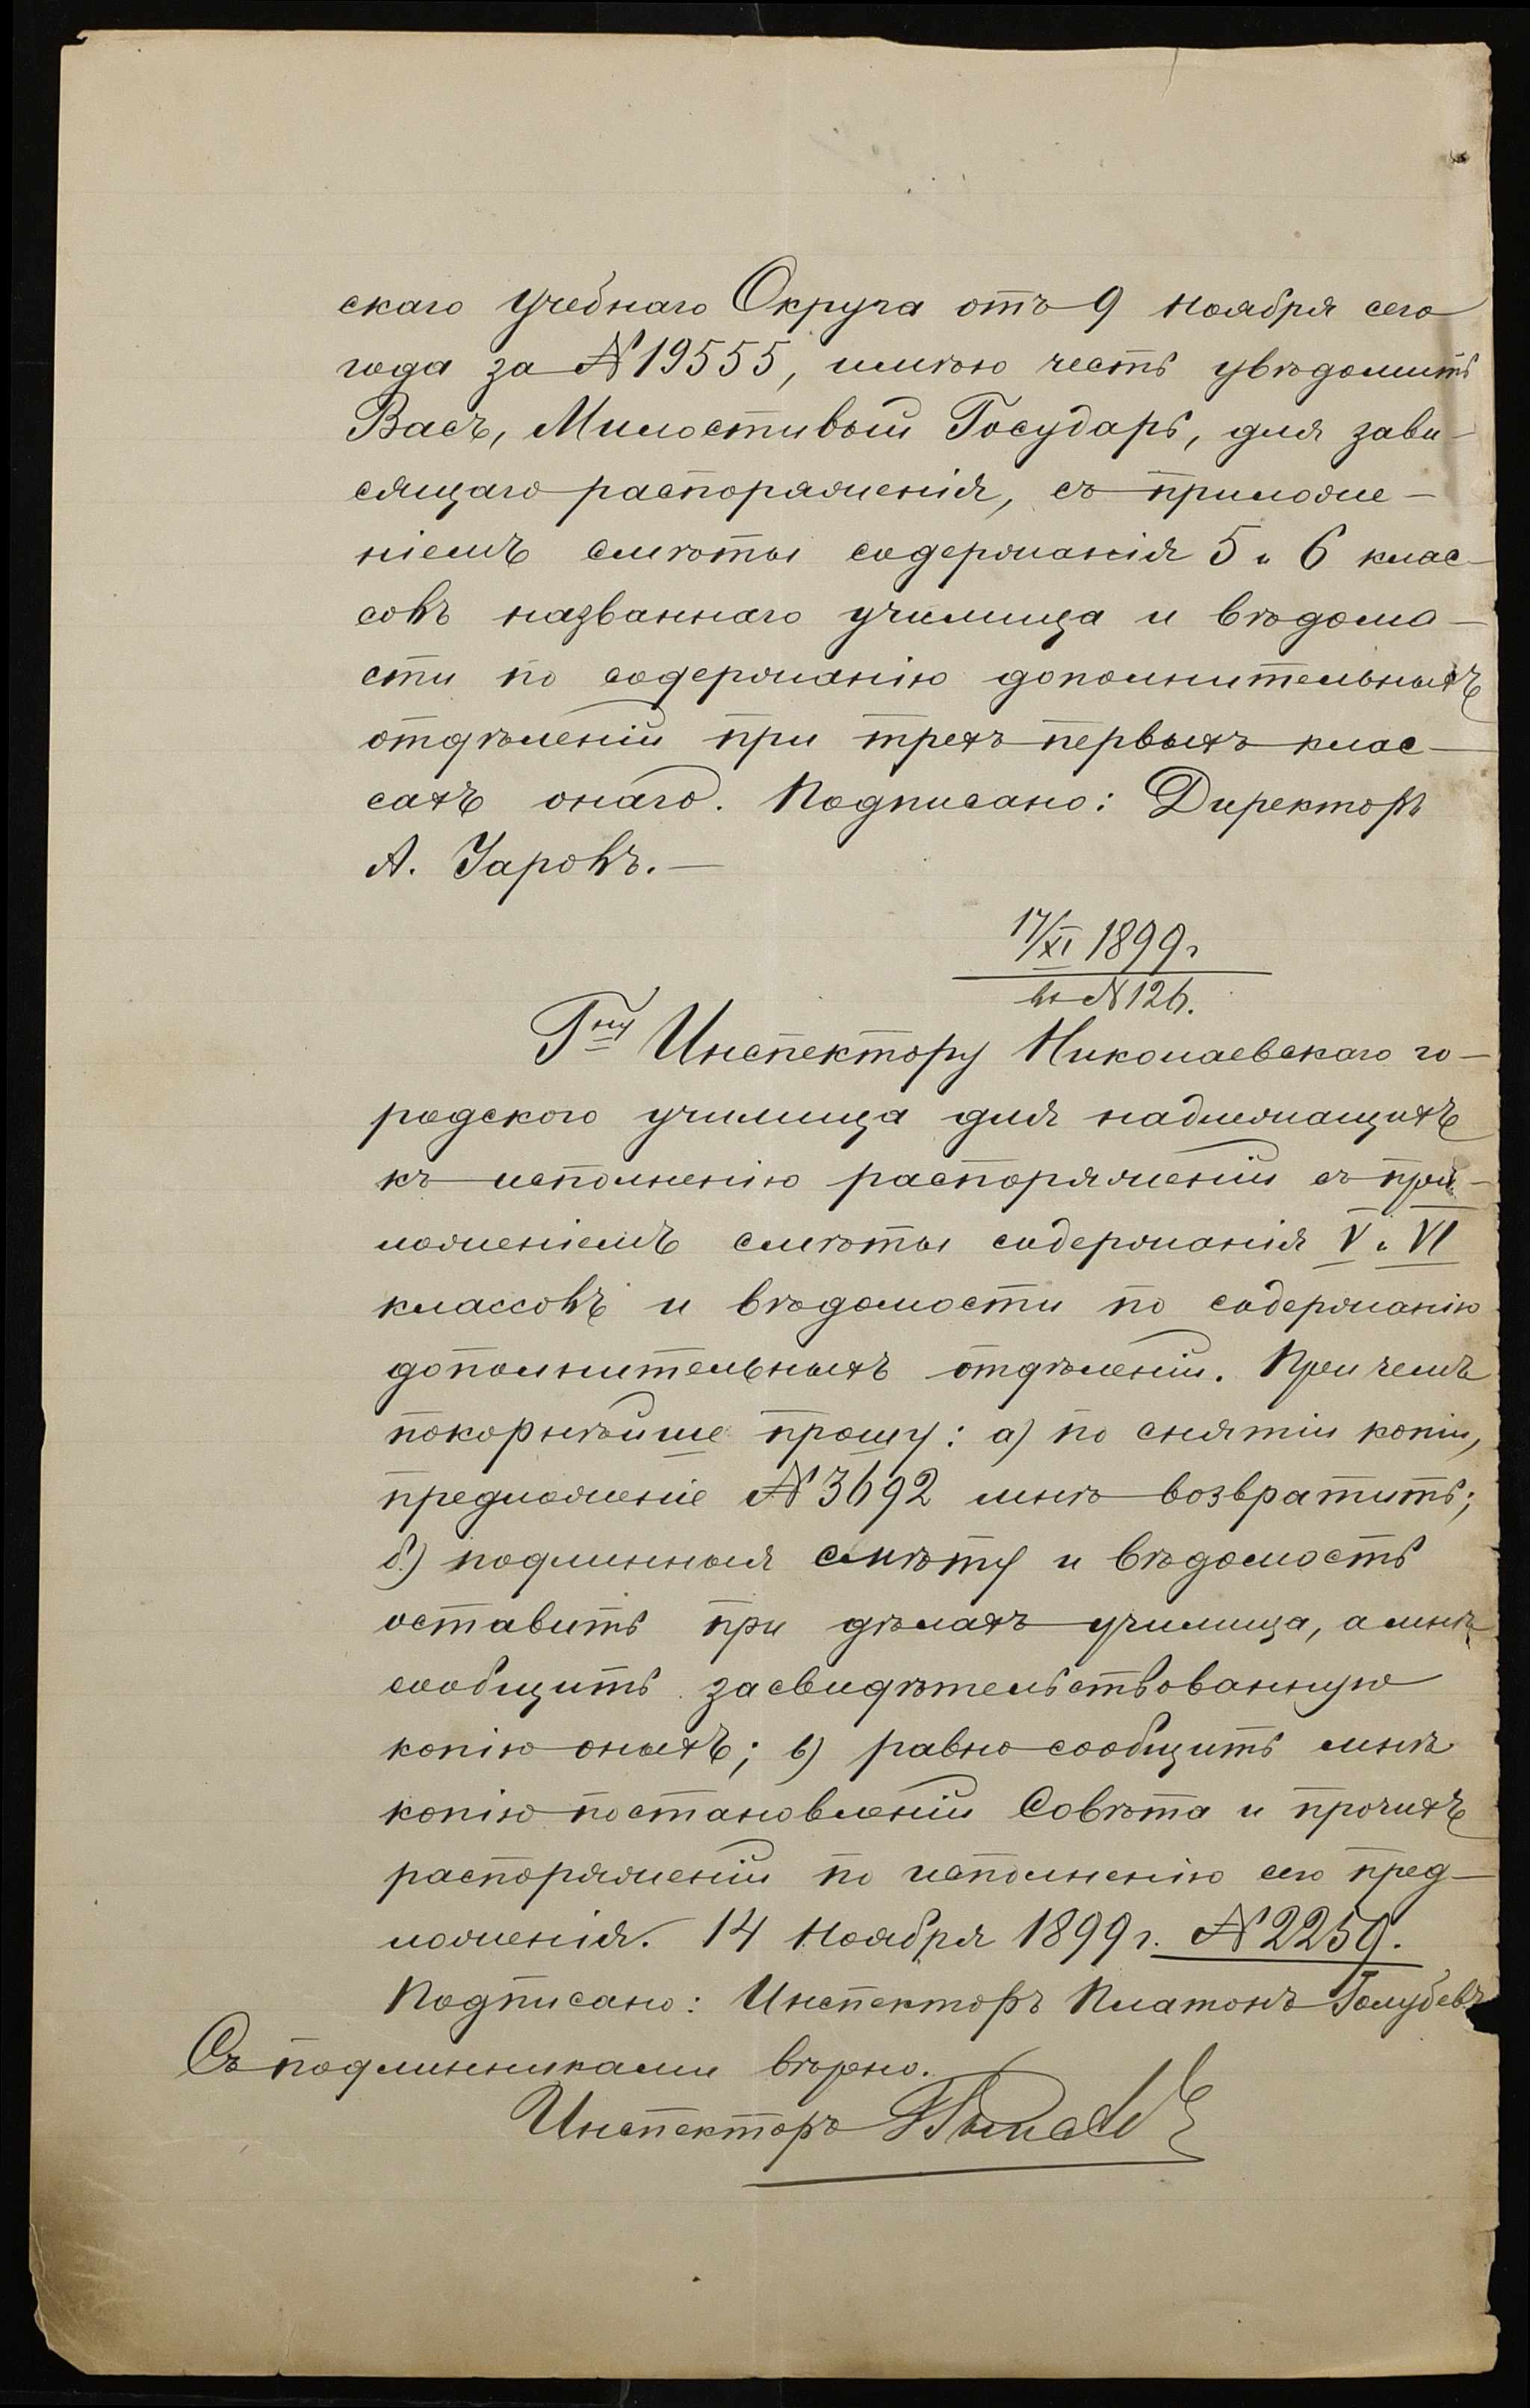 скаго Учебнаго Округа отъ 9 Ноября сего
года за № 19555, имѣю честь увѣдомить
Васъ, Милостивый Государь, для зави-
сящаго распоряженія, съ приложе-
ніемъ смѣты содержанія 5 и 6 клас-
совъ названнаго училища и вѣдомо-
сти по содержанію дополнительныхъ
отдѣленій при трехъ первыхъ клас-
сахъ онаго. Подписано: Директоръ
А. Уаровъ.—
17/XI 1899 г
вх № 126.
Гну Инспектору Николаевскаго го-
родского училища для надлежащихъ
къ исполненію распоряженій съ при-
ложеніемъ смѣты содержанія V и VI
классовъ и вѣдомости по содержанію
дополнительныхъ отдѣленій. При чемъ
покорнѣйше прошу: а) по снятіи копіи,
предложеніе № 3692 мнѣ возвратить;
б) подлинныя смѣту и вѣдомость
оставить при дѣлахъ училища, а мнѣ
сообщить засвидѣтельствованную
копію оныхъ; в) равно сообщить мнѣ
копію постановленій Совѣта и прочихъ
распоряженій по исполненію сего пред-
ложенія. 14 Ноября 1899 г. № 2259.
Подписано: Инспекторъ Платонъ Голубевъ
Съ подлинниками вѣрно.
Инспекторъ